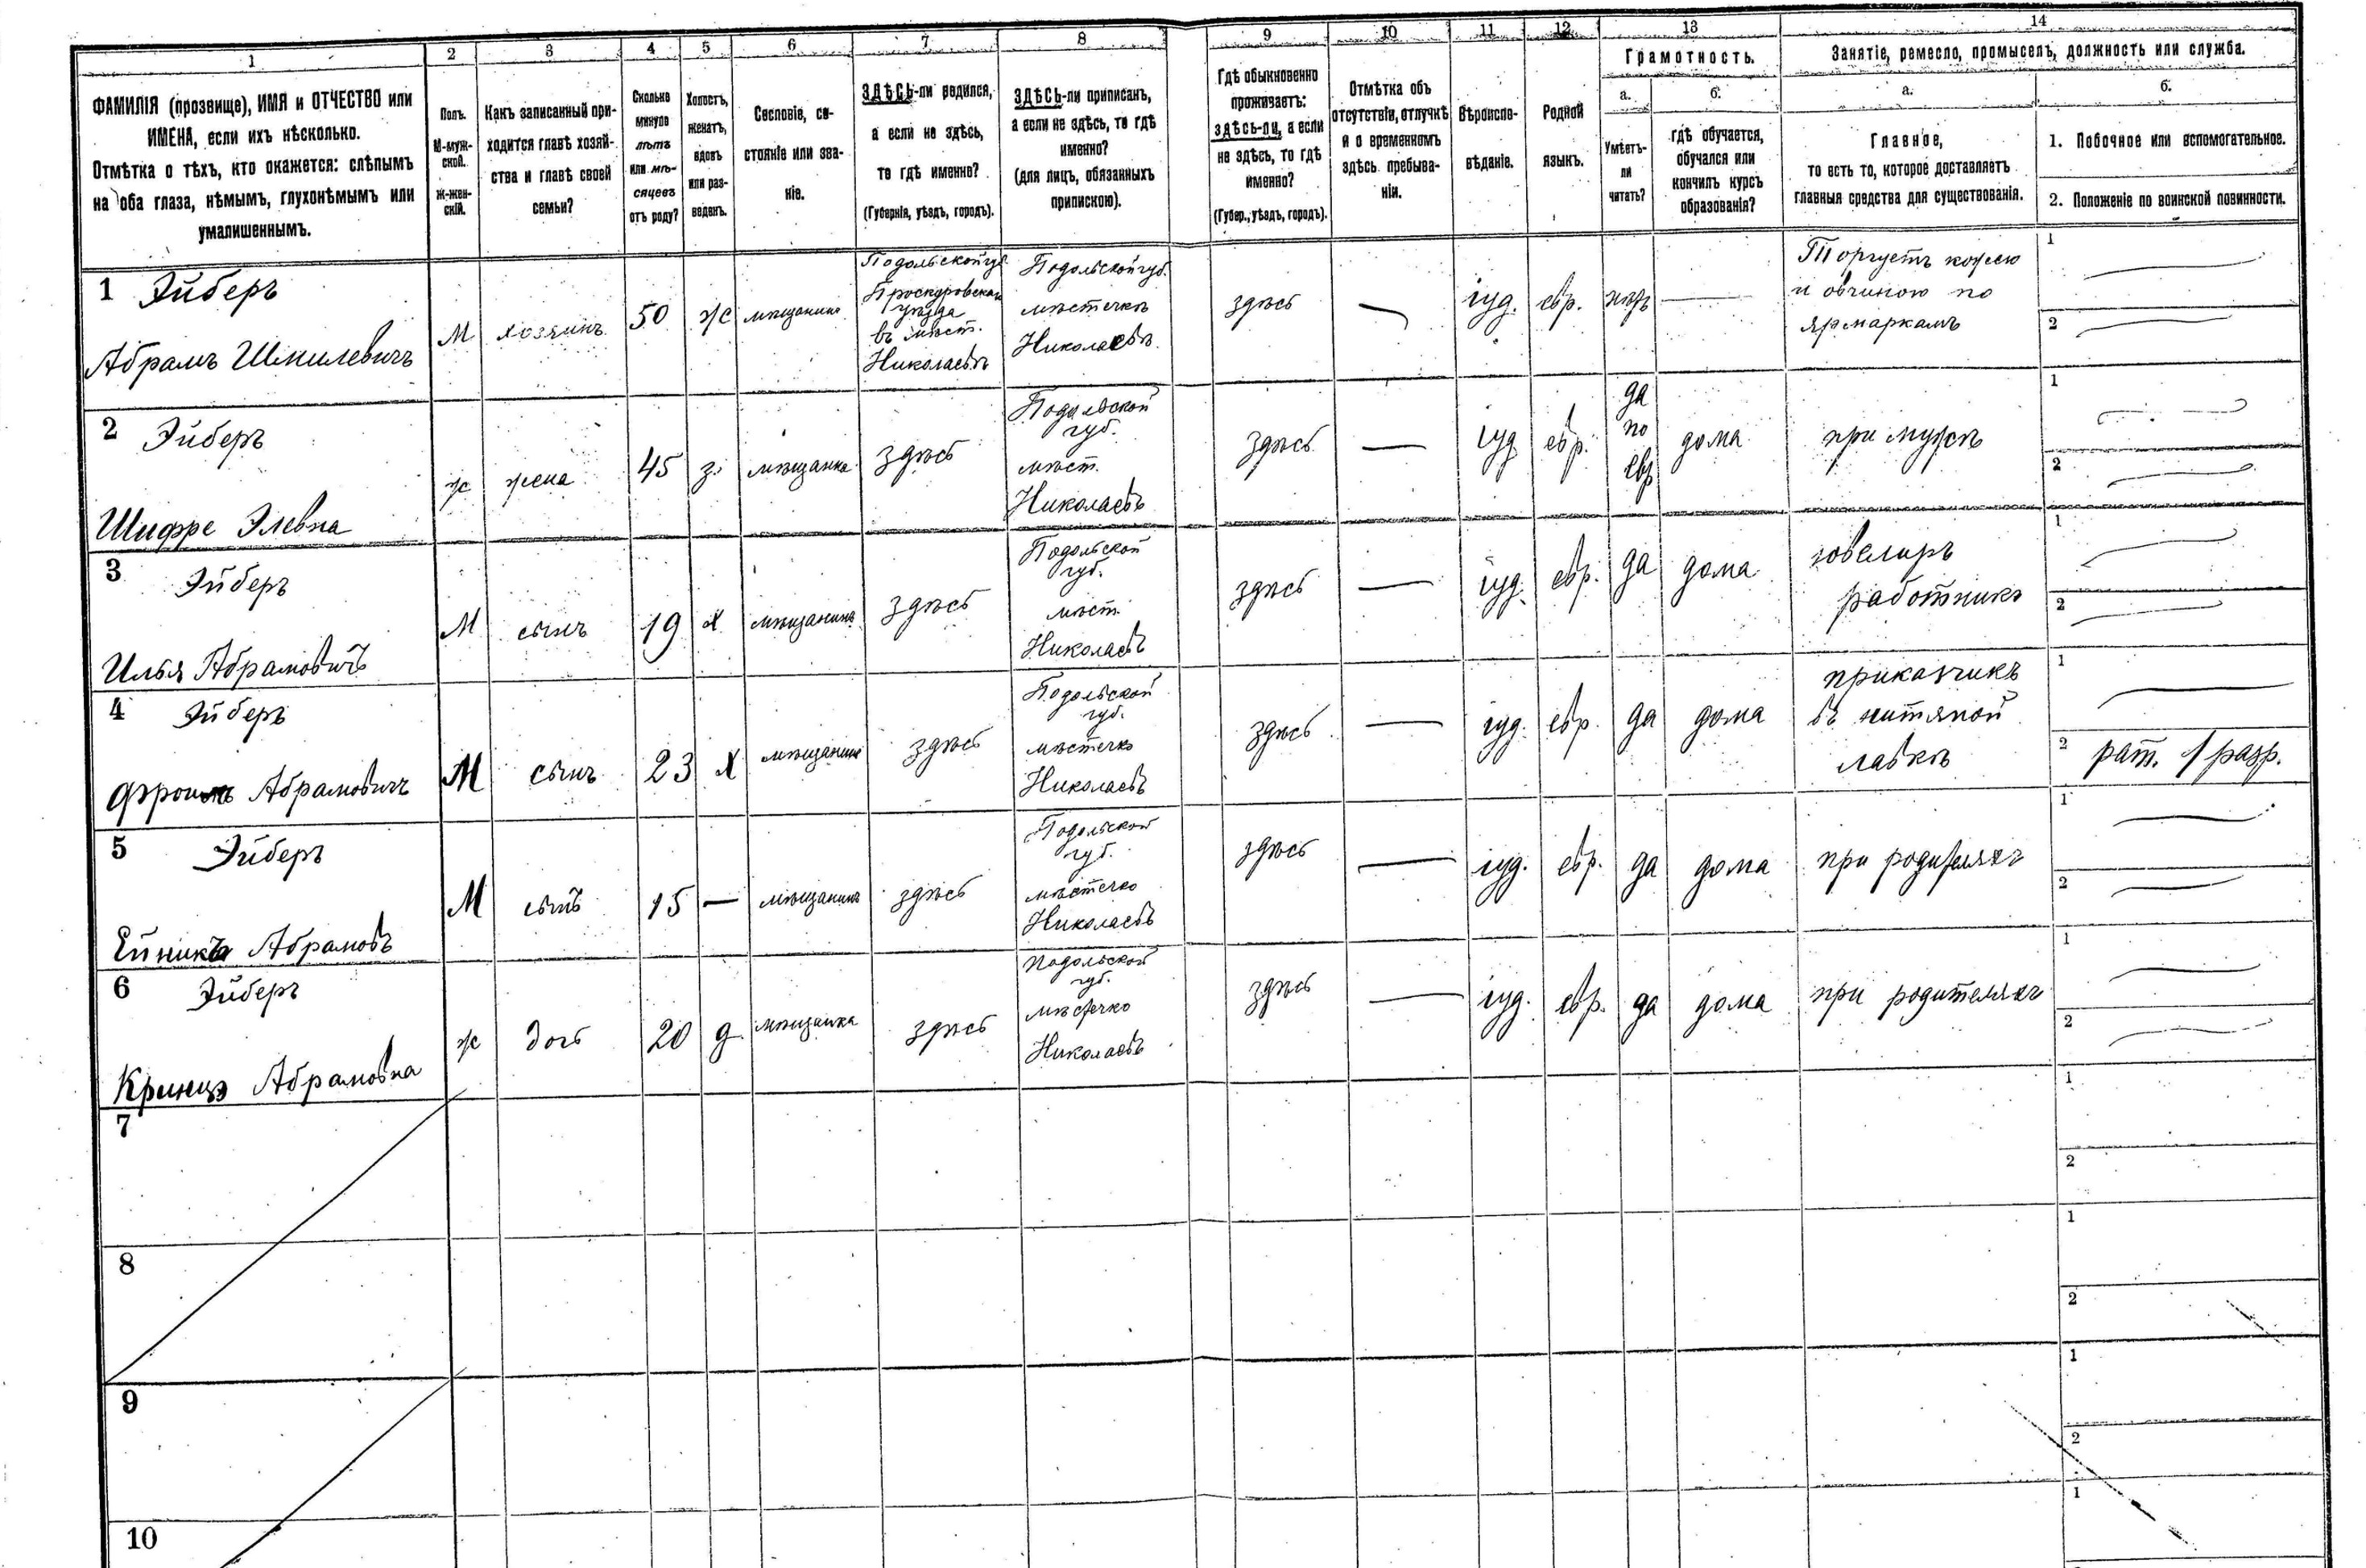 1 2 3 4 5 6 7 8 9 10 11 12 13 14
ФАМИЛІЯ (прозвище), ИМЯ и ОТЧЕСТВО или
ИМЕНА, если ихъ нѣсколько.
Отмѣтка о тѣхъ, кто окажется: слѣпымъ
на оба глаза, нѣмымъ, глухонѣмымъ или
умалишеннымъ.
Полъ.
М-муж-
ской.
Ж-жен-
скій.
Какъ записанный при-
ходится главѣ хозяй-
ства и главѣ своей
семьи?
Сколько
минуло
лѣтъ
или мѣ-
сяцевъ
отъ роду?
Холостъ,
женатъ,
вдовъ
или раз-
веденъ.
Сословіе, со-
стояніе или зва-
ніе.
ЗДѢСЬ-ли родился,
а если не здѣсь,
то гдѣ именно?
(Губернія, уѣздъ, городъ).
ЗДѢСЬ-ли приписанъ,
а если не здѣсь, то гдѣ
именно?
(для лицъ, обязанныхъ
припискою).
Гдѣ обыкновенно
проживаетъ:
ЗДѢСЬ-ли, а если
не здѣсь, то гдѣ
именно?
(Губер., уѣздъ, городъ).
Отмѣтка объ
отсутствіи, отлучкѣ
и о временномъ
здѣсь пребыва-
ніи.
Вѣроиспо-
вѣданіе.
Родной
языкъ.
Грамотность.
а.
Умѣетъ-
ли
читать?
б.
гдѣ обучается,
обучался или
кончилъ курсъ
образованія?
Занятіе, ремесло, промыселъ, должность или служба.
а.
Главное,
то есть то, которое доставляетъ
главныя средства для существованія.
б.
1. Побочное или вспомогательное.
2. Положеніе по воинской повинности.
1 Эйберъ
Абрамъ Шмилевичъ
М
хозяинъ
50
ж
мѣщанинъ
Подольской губ
Проскуровскаго
уѣзда
въ мѣст.
Николаевъ
Подольской губ.
мѣстечкѣ
Николаевъ
здѣсь
—
іуд.
евр.
—
Торгуетъ кожею
и овчиною по
ярмаркамъ
1 —
2 —
2 Эйберъ
Шифре Элевна
ж
жена
45
з.
мѣщанка
здѣсь
Подольской
губ.
мѣст.
Николаевъ
здѣсь
—
іуд
евр.
да
по
евр
дома
при мужѣ
1 —
2 —
3 Эйберъ
Илья Абрамовичъ
М
сынъ
19
х
мѣщанинъ
здѣсь
Подольской
губ.
мѣст.
Николаевъ
здѣсь
—
іуд.
евр.
да
дома
ювелиръ
работникъ
1 —
2 —
4 Эйберъ
Абрамовичъ
М
сынъ
23
х
мѣщанинъ
здѣсь
Подольской
губ.
мѣстечко
Николаевъ
здѣсь
—
іуд.
евр.
да
дома
приказчикъ
въ нитяной
лавкѣ
1 —
2 рат. 1 разр.
5 Эйберъ
Абрамовъ
М
сынъ
15
—
мѣщанинъ
здѣсь
Подольской
губ.
мѣстечко
Николаевъ
здѣсь
—
іуд.
евр.
да
дома
при родителяхъ
1 —
2 —
6 Эйберъ
Кринцэ Абрамовна
ж
дочь
20
д
мѣщанка
здѣсь
Подольской
губ.
мѣстечко
Николаевъ
здѣсь
—
іуд.
евр.
да
дома
при родителяхъ
1 —
2 —
7
1
2
8
1
2
9
1
2
10
1